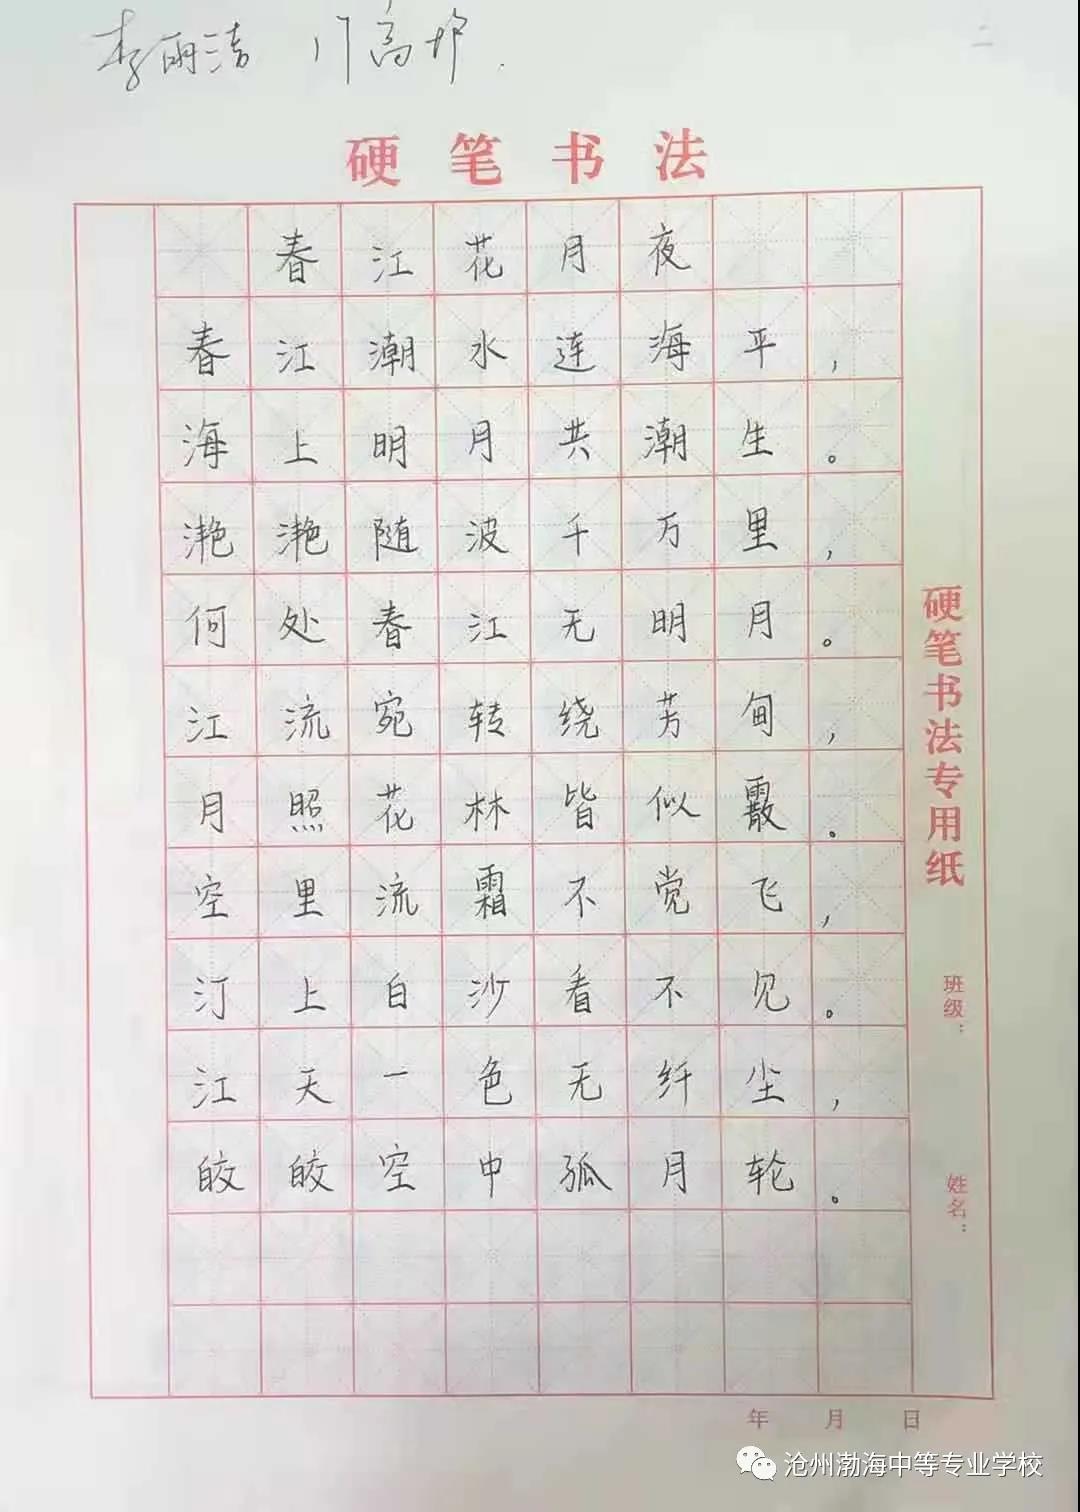 李丽洁
二
硬笔书法
春江花月夜
春江潮水连海平，
海上明月共潮生。
滟滟随波千万里，
何处春江无明月。
江流宛转绕芳甸，
月照花林皆似霰。
空里流霜不觉飞，
汀上白沙看不见。
江天一色无纤尘，
皎皎空中孤月轮。
硬笔书法专用纸
班级：
姓名：
年 月 日
沧州渤海中等专业学校